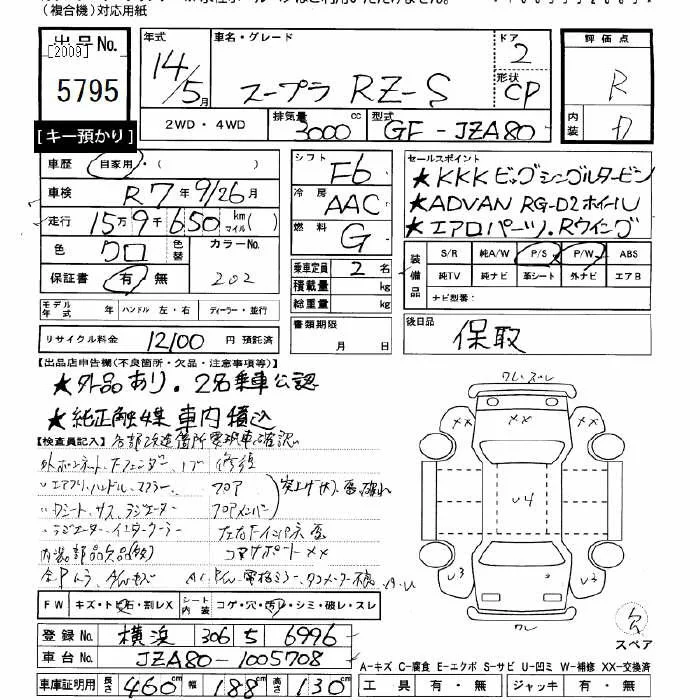 (複合機)対応用紙
出品No.
[2009]
5795
[キー預かり]
年式 14/5月
車名・グレード スープラ RZ-S
ドア 2
形状 CP
評価点 R
内装 D
2WD・4WD
排気量 3000 cc
型式 GF-JZA80
車歴 自家用・( )
車検 R7年9/26月
走行 15万9千650 km マイル( )
色 クロ 色替 カラーNo. 202
保証書 有・無
モデル年式 年 ハンドル 左・右 ディーラー・並行
リサイクル料金 12100 円 預託済
シフト F6
冷房 AAC
燃料 G
乗車定員 2 名
積載量 kg
総重量 kg
書類期限 月 日
セールスポイント
★KKKビッグシングルタービン
★ADVAN RG-D2ホイールU
★エアロパーツ.Rウイング
装備品 S/R 純A/W P/S P/W ABS
純TV 純ナビ 革シート 外ナビ エアB
ナビ型番:
後日品 保取
【出品店申告欄(不良箇所・欠品・注意事項等)】
★外品あり.2名乗車公認
★純正触媒 車内積込
【検査員記入】各部改造箇所要現車確認
外ボンネット
修復
エアクリ、ハンドル、マフラー
フロア
シート、サス、ラジエーター
フロアメンバー
ラジエーター、インタークーラー
左右Fインパネ
内装部品欠品(後)
コアサポートXX
FW キズ・ト石・割レX シート内装 コゲ・穴・汚レ・シミ・破レ・スレ
登録No. 横浜 306 ち 6996
車台No. JZA80-1005708
車庫証明用 長さ 460 cm 幅 188 cm 高さ 130 cm
ワレ.ズレ
XX XX
U4
U3 U3
欠
スペア
A-キズ C-腐食 E-エクボ S-サビ U-凹ミ W-補修 XX-交換済
工具 有・無 ジャッキ 有・無